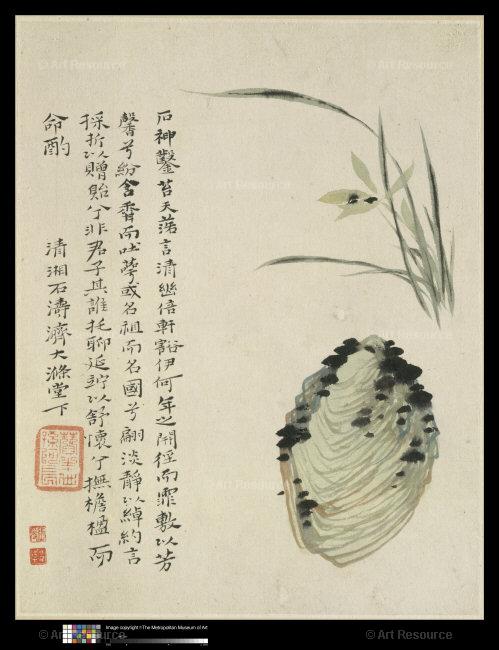 © Art Resource
© Art Resource
石神鑿苔天蕩言清幽倍軒谿伊何年之開徑而霏敷以芳
馨兮紛含香而吐萼或名祖而名國兮翩淡靜以綽約言
採折以贈貽兮非君子其誰托聊延竚以舒懷兮撫檐楹而
命酌
清湘石濤濟大滌堂下
Image copyright © The Metropolitan Museum of Art
© Art Resource
© Art Resource